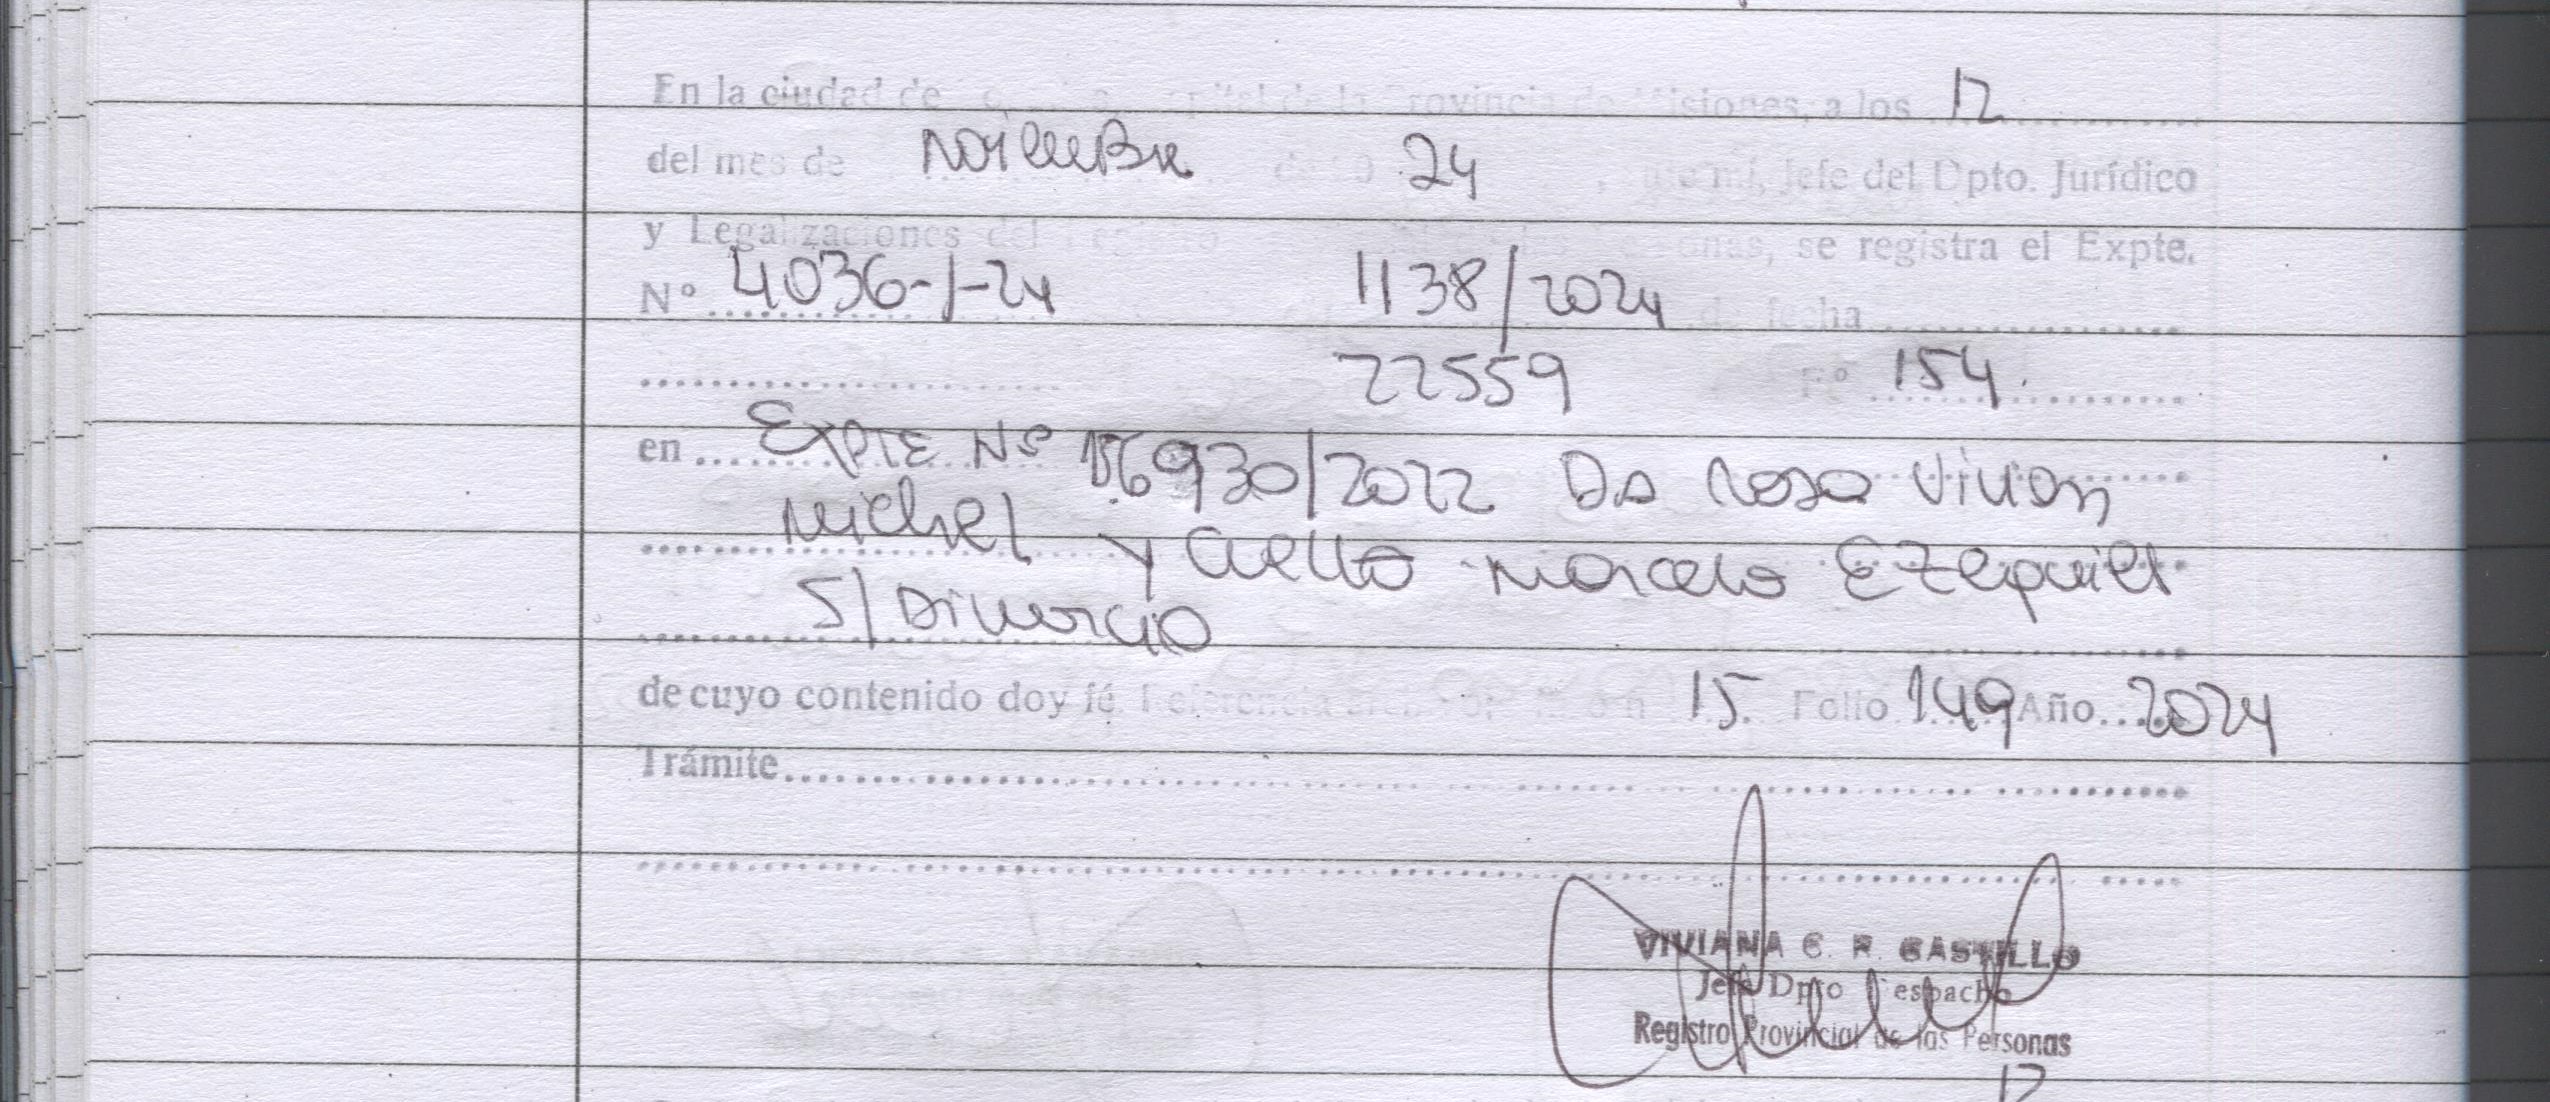 En la ciudad de Capital de la Provincia de Misiones, a los 12
del mes de Noviembre 24 , ante mí, Jefe del Dpto. Jurídico
y Legalizaciones del Personas, se registra el Expte.
Nº 4036-1-24 1138/2024 de fecha
22559 Fº 154.
en Expte Nº 156930/2022 Da Rosa Vivian
Michel y Cuello Marcelo Ezequiel
S/ Divorcio
de cuyo contenido doy fé. Referencia 15 Folio 149 Año 2024
Trámite
VIVIANA C. R. CASTILLO
Jefe Dpto Despacho
Registro Provincial de las Personas